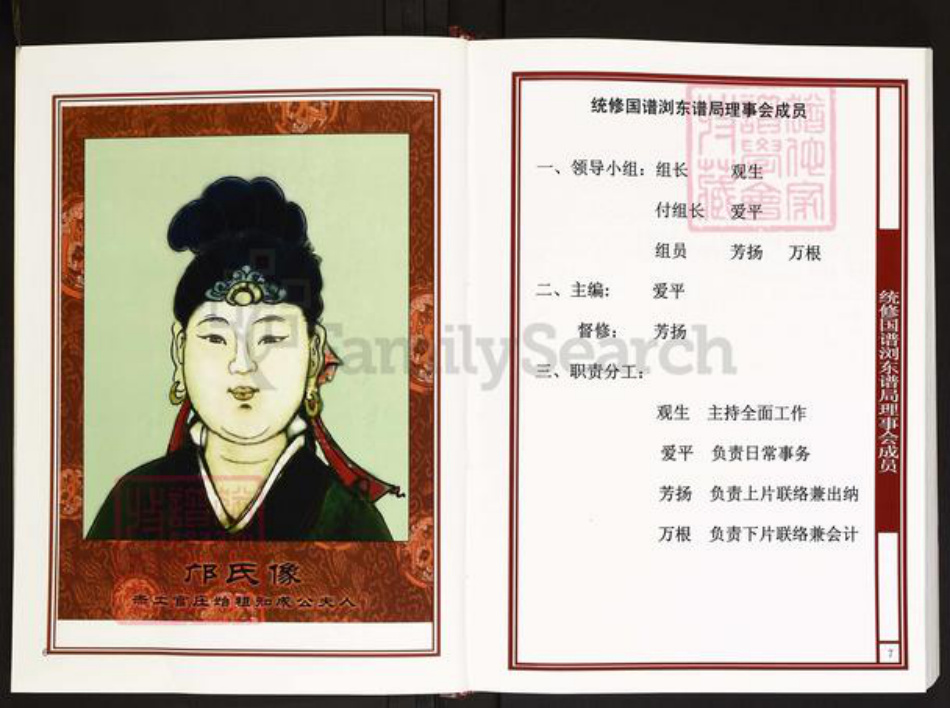 邝氏像
官庄始祖知成公夫人
统修国谱浏东谱局理事会成员
一、领导小组：组长 观生
付组长 爱平
组员 芳扬 万根
二、主编： 爱平
督修： 芳扬
三、职责分工：
观生 主持全面工作
爱平 负责日常事务
芳扬 负责上片联络兼出纳
万根 负责下片联络兼会计
统修国谱浏东谱局理事会成员
7
FamilySearch